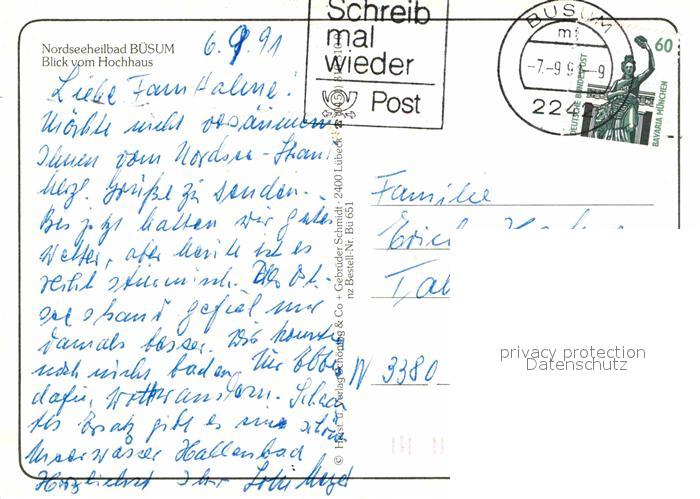 Nordseeheilbad BÜSUM
Blick vom Hochhaus
6.9.91
Schreib
mal
wieder
Post
BÜSUM
-7.-9.9 -9
2242
60
DEUTSCHE BUNDESPOST
BAVARIA MÜNCHEN
Liebe Fam. Hahne!
Möchte nicht versäumen
Ihnen vom Nordsee-Stran
herzl. Grüße zu senden.
Bis jetzt hatten wir gutes
Wetter, aber heute ist es
recht stürmisch. Der Ost-
seestrand gefiel mir
damals besser. Wir konnten
noch nicht baden, für Ebbe
dafür, Wattwandern.
Ersatz gibt es ein schön
Meerwasser Hallenbad
Herzlichst Ihre
© Horst u. Verlag Schöning & Co + Gebrüder Schmidt · 2400 Lübeck
nz Bestell-Nr. Bü 651
Familie
Erich
W 3380
privacy protection
Datenschutz